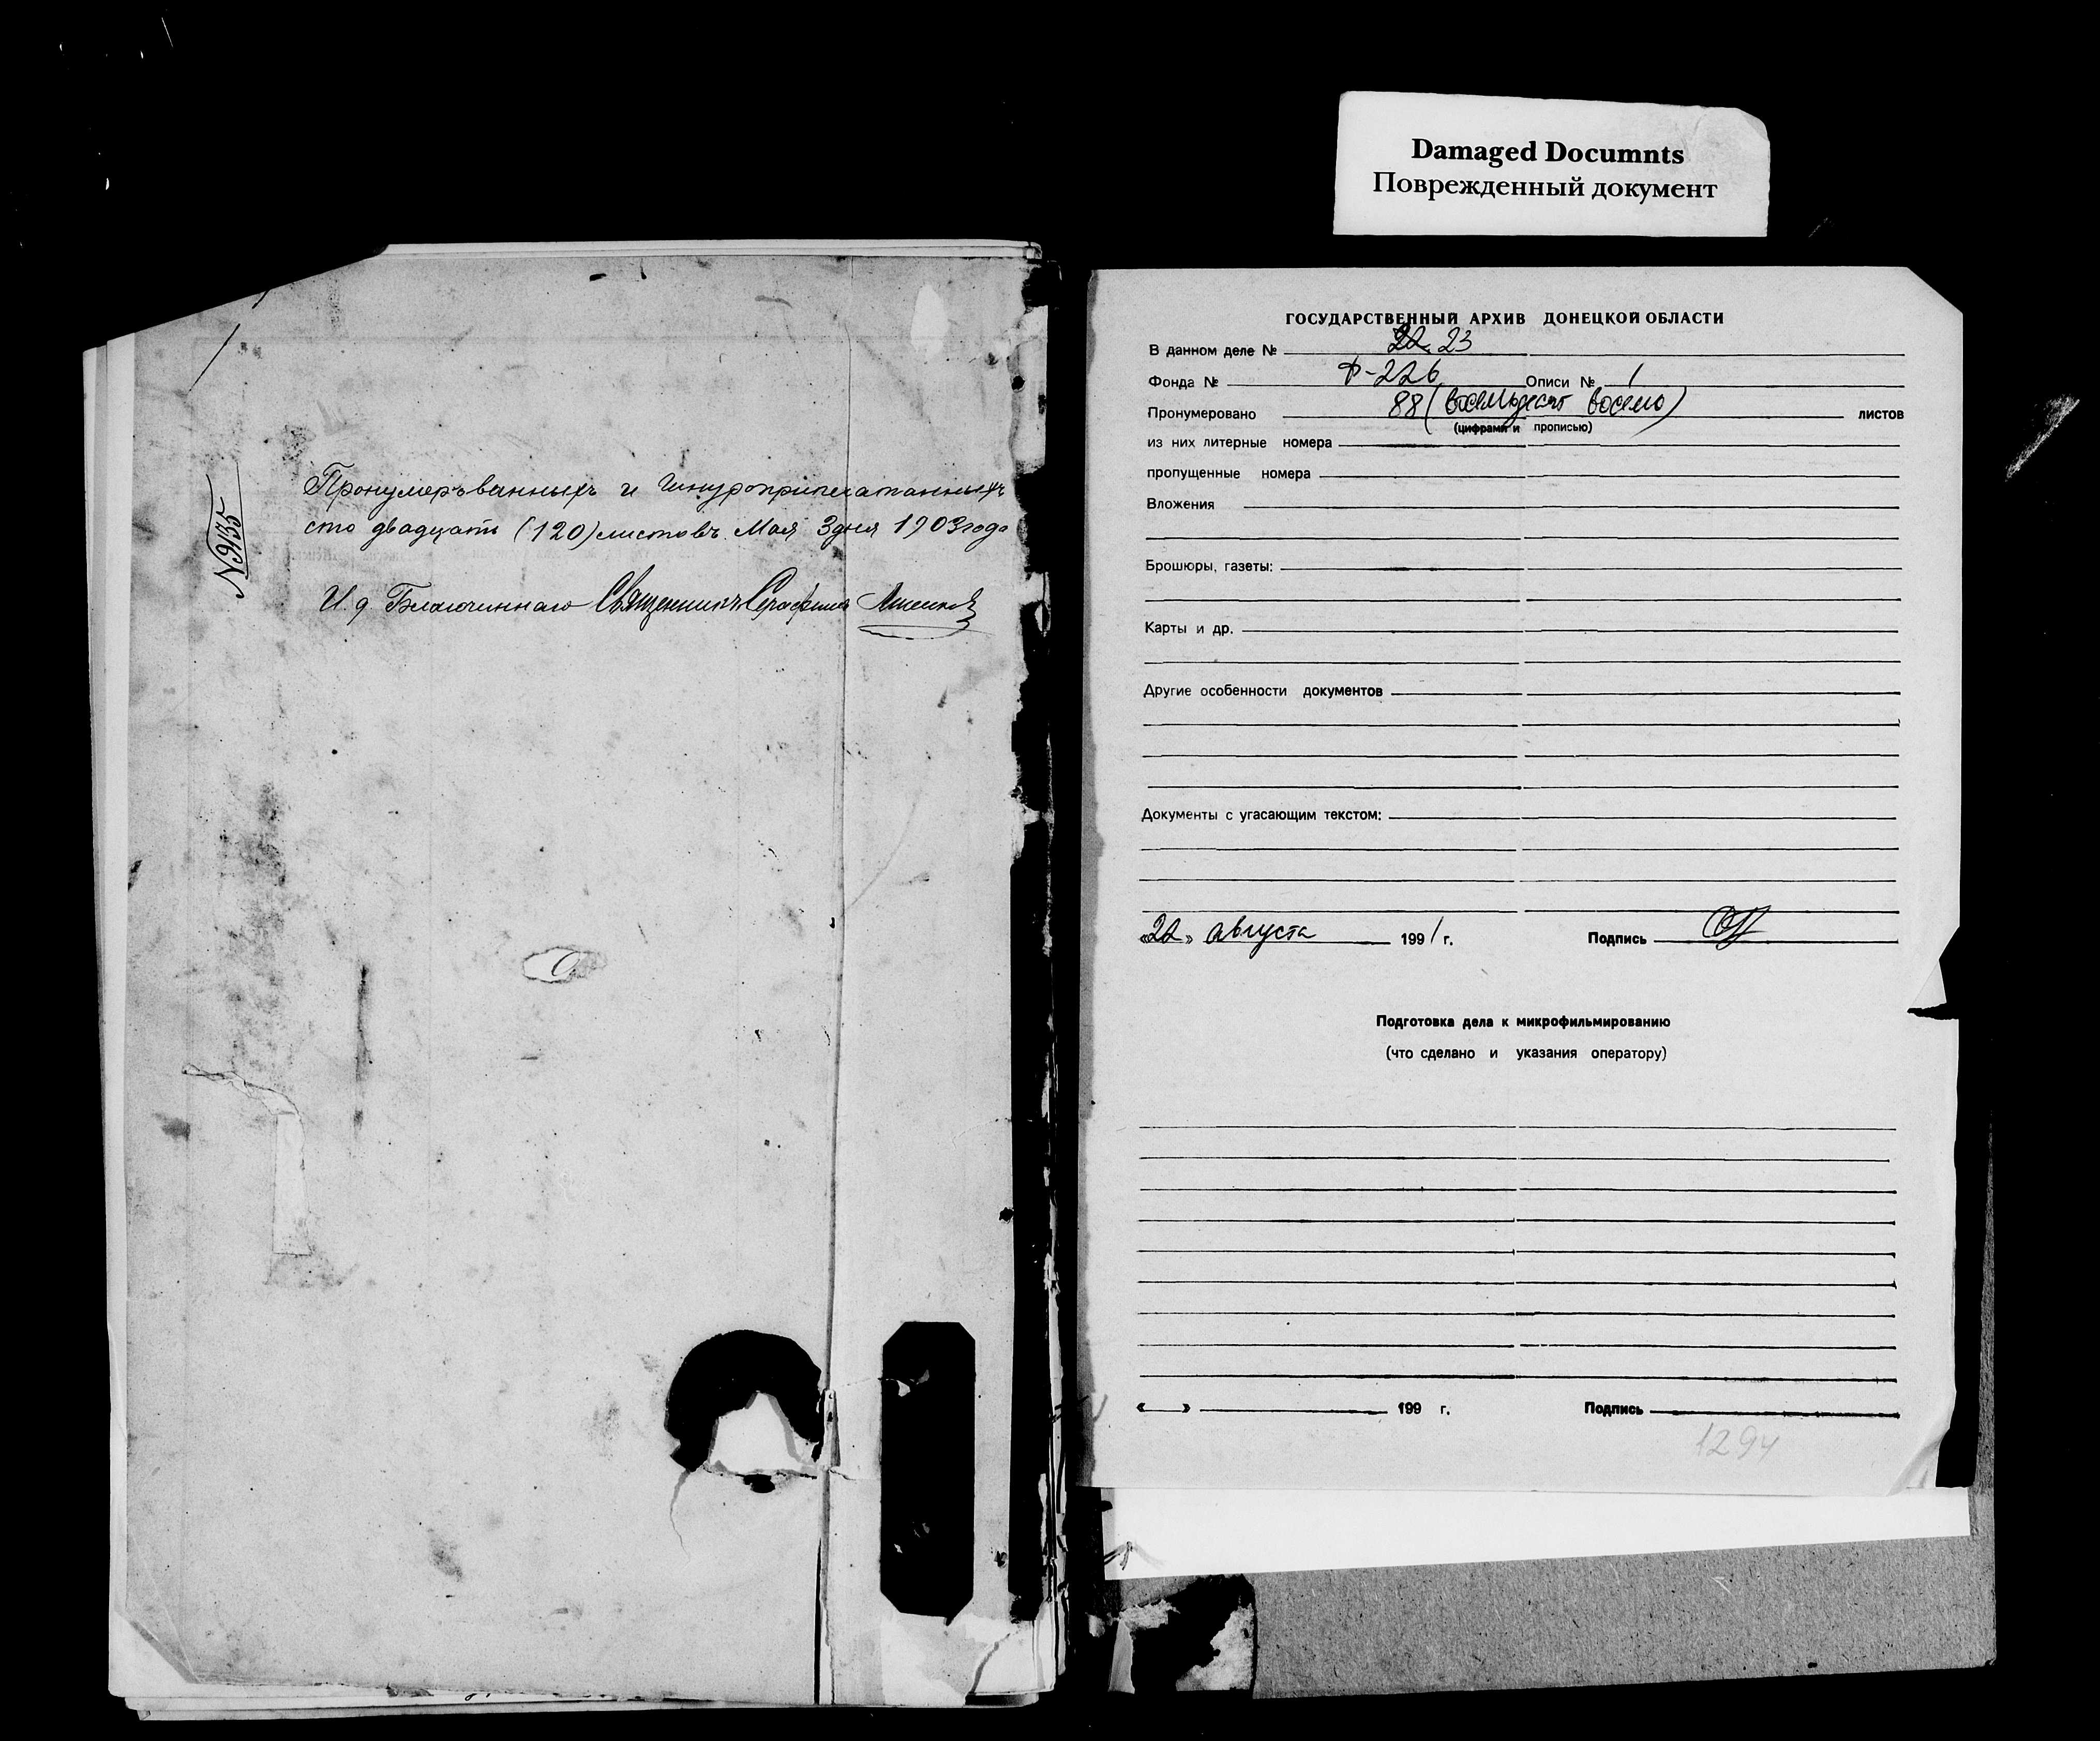 Damaged Documnts
Поврежденный документ
№ 935
Пронумеръванныхъ и шнуроприпечатанныхъ
сто двадцать (120) листовъ. Мая 3 дня 1903 года
И. д. Благочиннаго Священникъ Серафимъ
ГОСУДАРСТВЕННЫЙ АРХИВ ДОНЕЦКОЙ ОБЛАСТИ
В данном деле № 22. 23
Фонда № Ф-226 Описи № 1
Пронумеровано 88 (восемьдесят восемь) листов
(цифрами и прописью)
из них литерные номера
пропущенные номера
Вложения
Брошюры, газеты:
Карты и др.
Другие особенности документов
Документы с угасающим текстом:
«22» августа 1991 г. Подпись
Подготовка дела к микрофильмированию
(что сделано и указания оператору)
« » 199 г. Подпись
1294